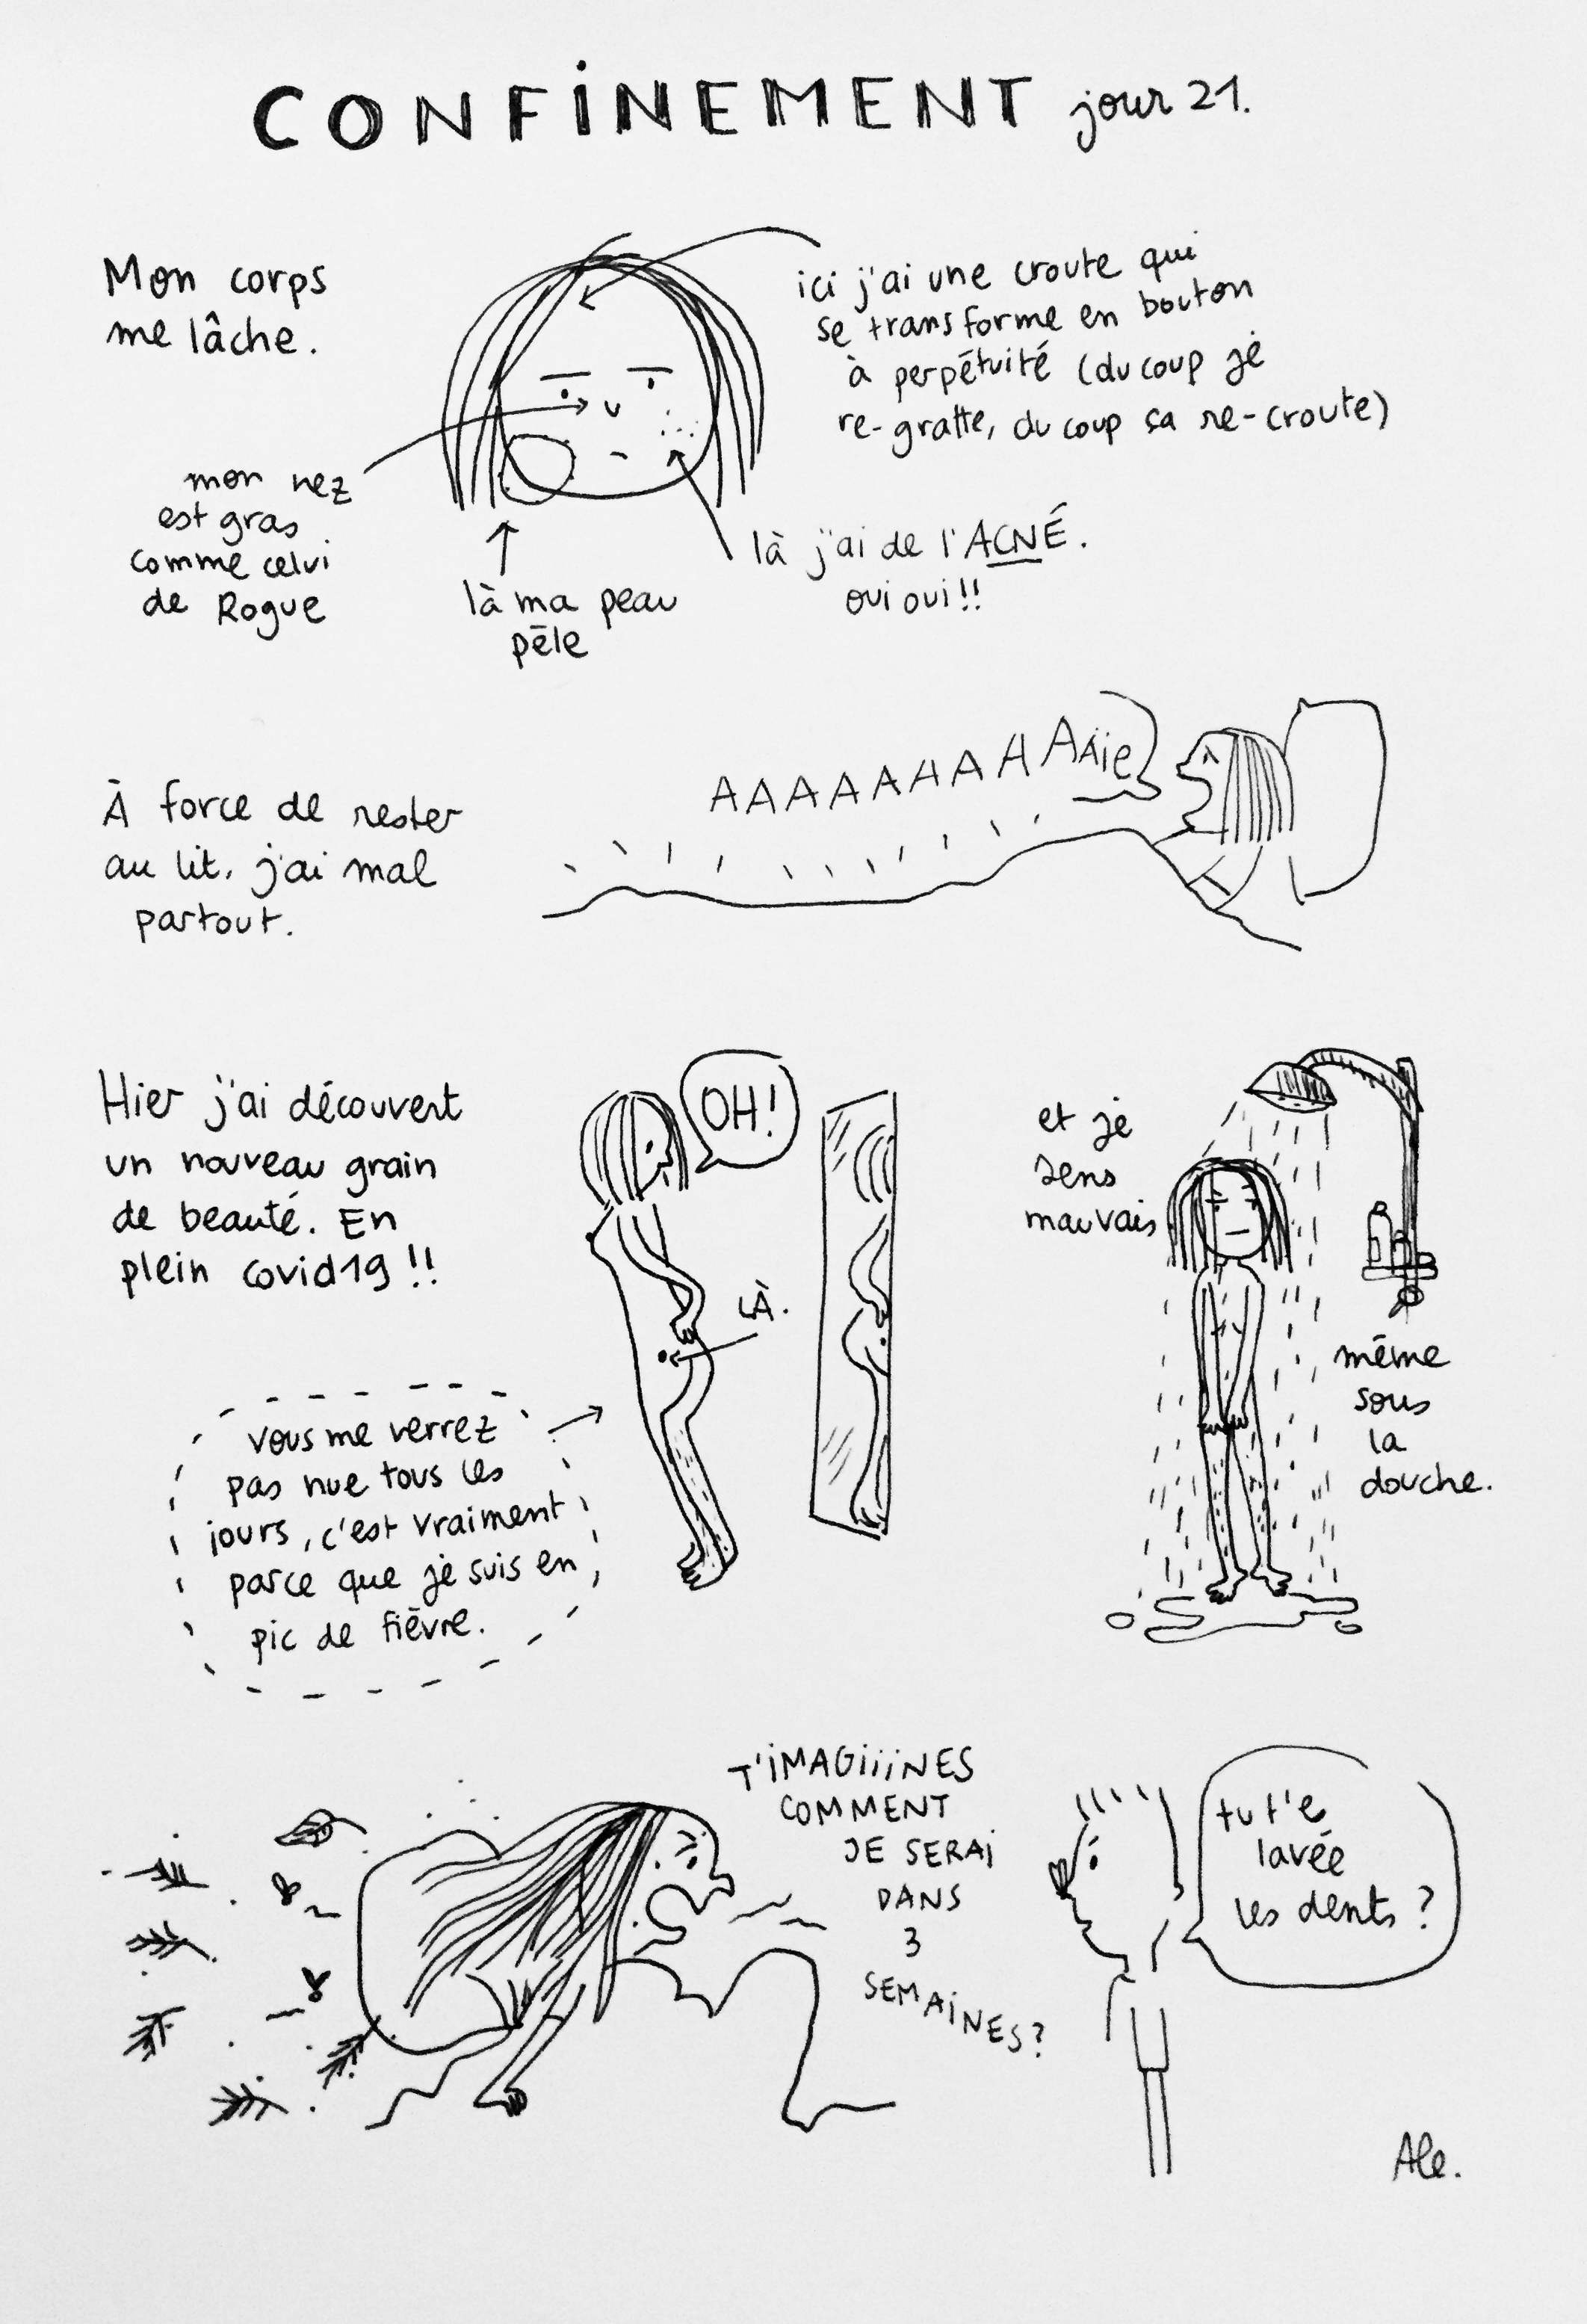 CONFINEMENT jour 21.
Mon corps
me lâche.
ici j'ai une croute qui
se transforme en bouton
à perpétuité (du coup je
re-gratte, du coup sa re-croute)
mon nez
est gras
comme celui
de Rogue
là ma peau
pèle
là j'ai de l'ACNÉ.
oui oui!!
À force de rester
au lit, j'ai mal
partout.
AAAAAAAAAAïe
Hier j'ai découvert
un nouveau grain
de beauté. En
plein covid19 !!
OH!
LÀ.
vous me verrez
pas nue tous les
jours, c'est vraiment
parce que je suis en
pic de fièvre.
et je
sens
mauvais
même
sous
la
douche.
T'iMAGiiiNES
COMMENT
JE SERAi
DANS
3
SEMAiNES?
tu t'e
lavée
les dents ?
Ale.